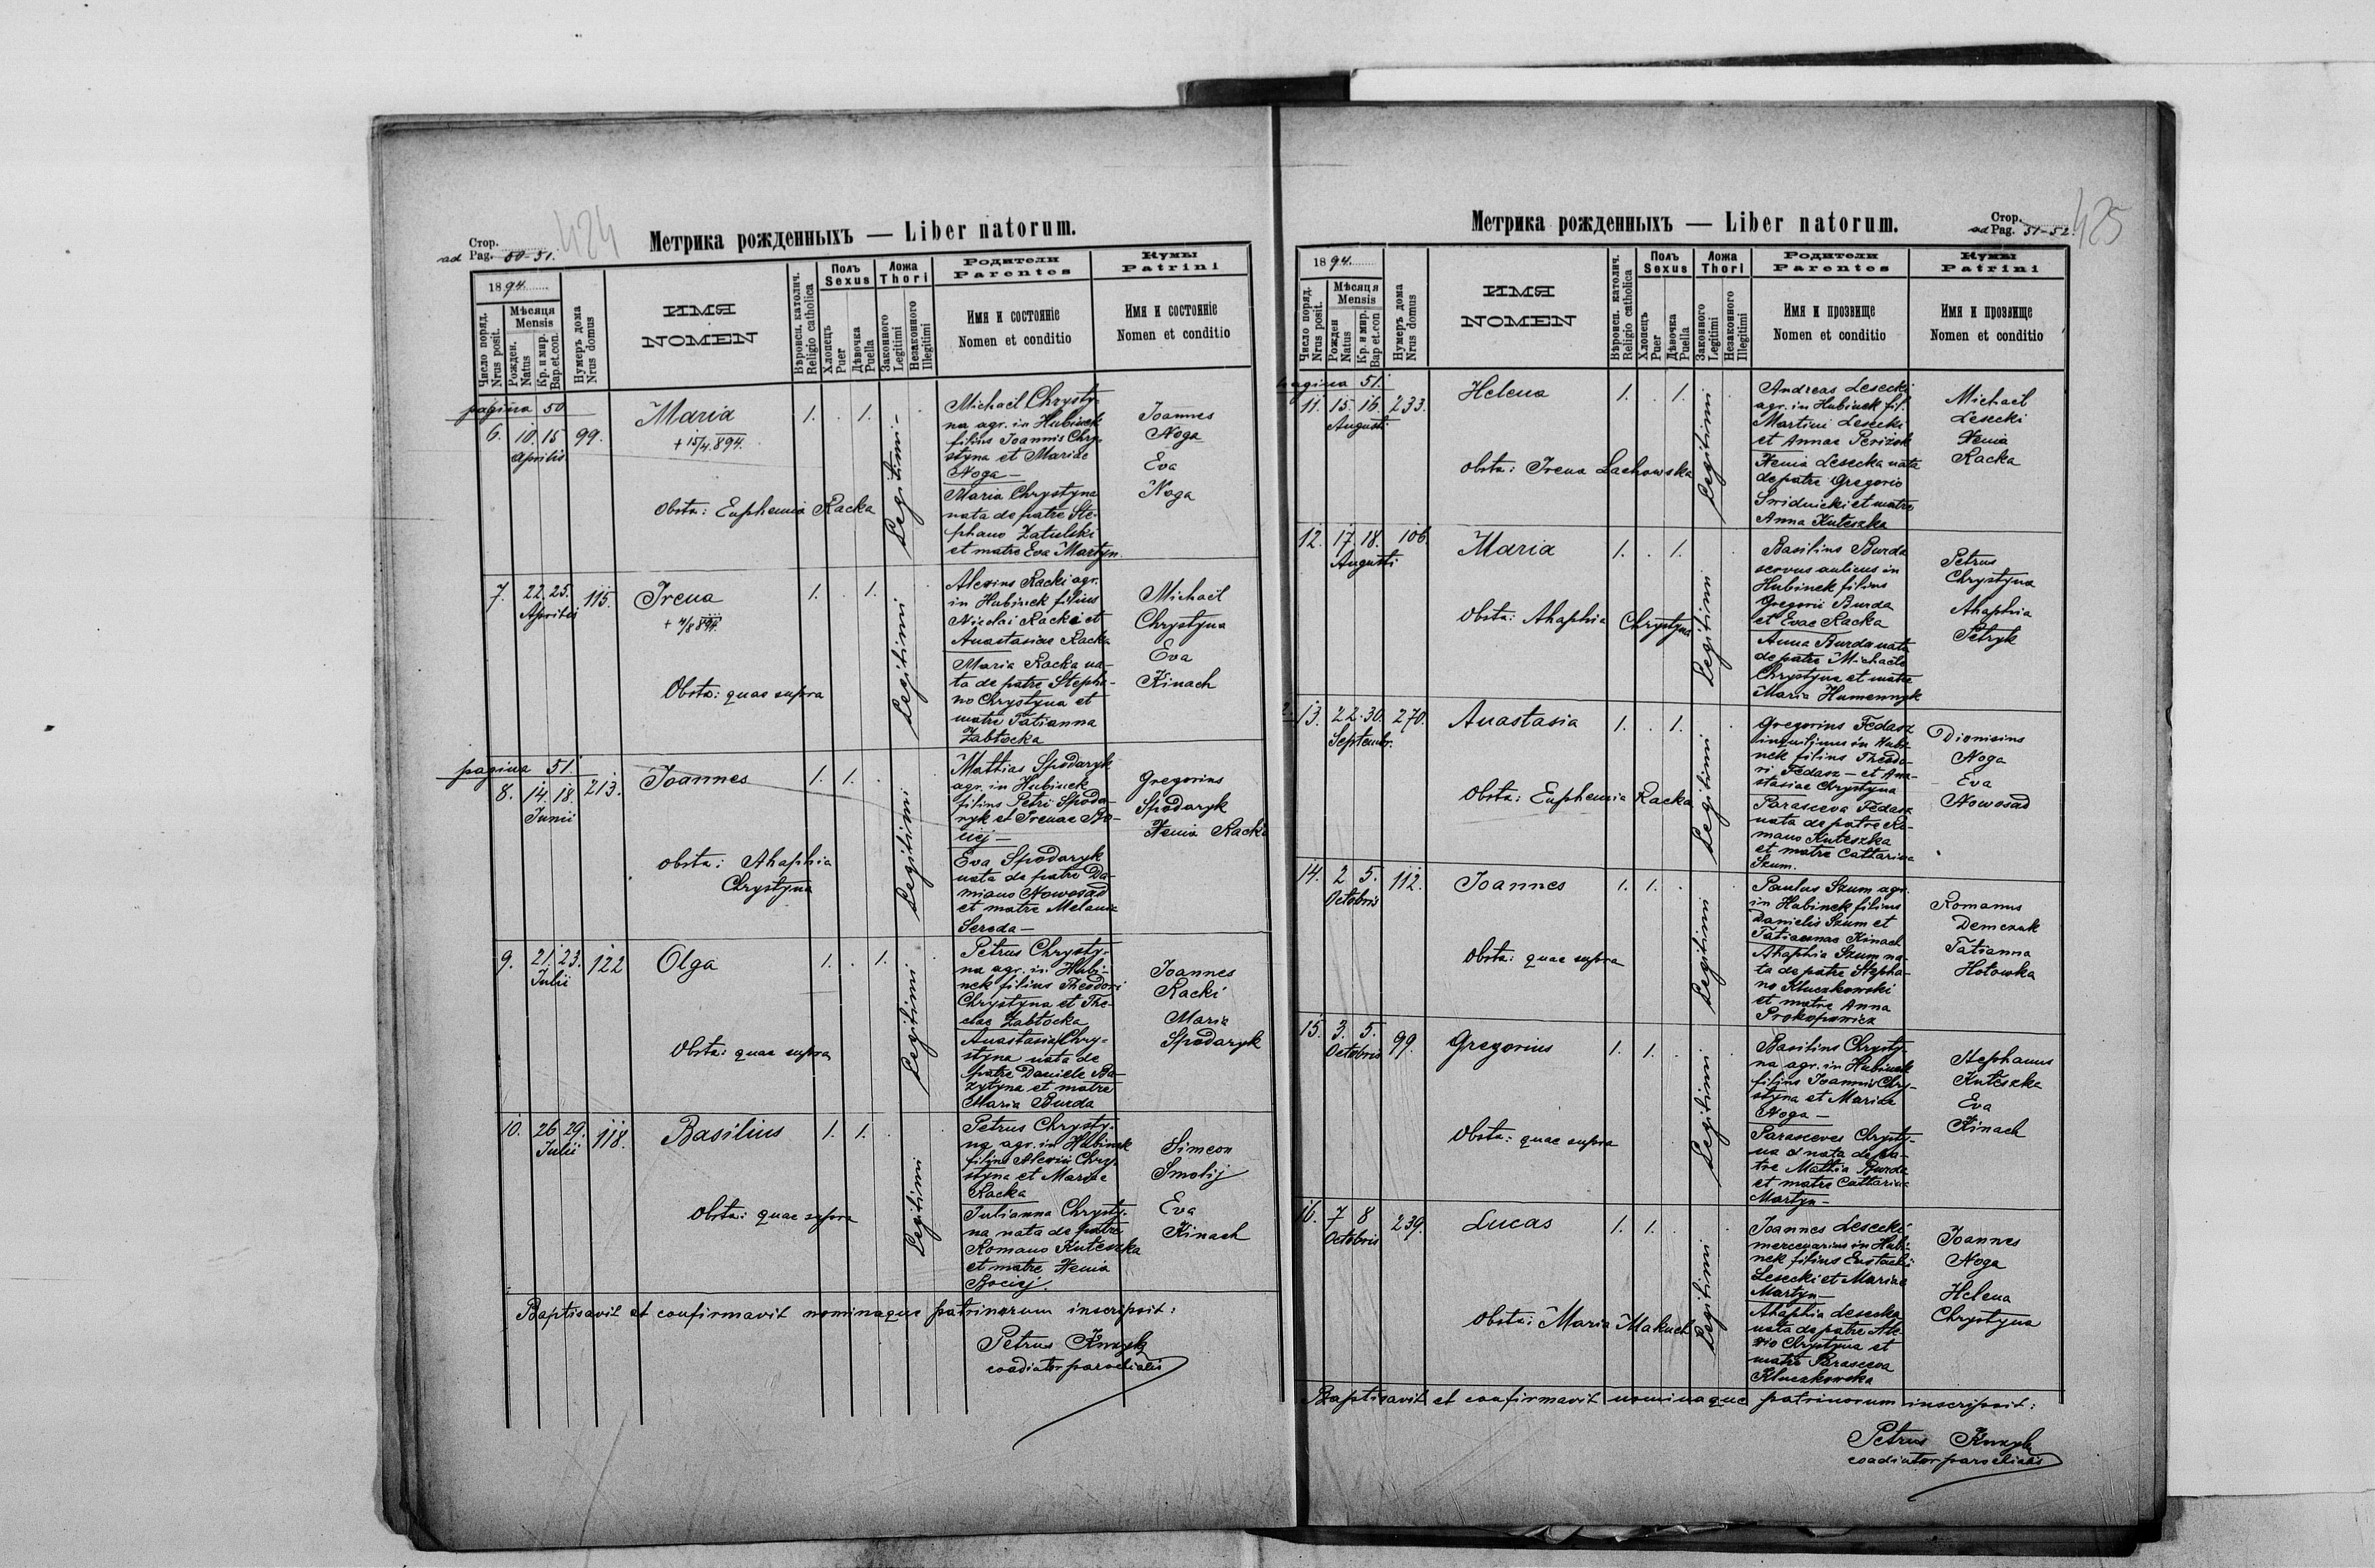 424
Метрика рожденныхъ — Liber natorum.
Стор.
ad Pag. 50-51.
1894.
Число поряд.
Nrus posit.
Мѣсяця
Mensis
Рожден.
Natus
Кр. и мир.
Bap.et.con.
Нумеръ дома
Nrus domus
ИМЯ
NOMEN
Вѣроисп. католич.
Religio catholica
Полъ
Sexus
Хлопецъ
Puer
Дѣвочка
Puella
Ложа
Thori
Законного
Legitimi
Незаконного
Illegitimi
Родители
Parentes
Имя и состоянiе
Nomen et conditio
Кумы
Patrini
Имя и состоянiе
Nomen et conditio
pagina 50
6. 10. 15 99. Maria 1. . 1. .
Aprilis
+ 15/4.894.
Obstx: Euphemia Racka
Legitimi
Michaël Chrysty-
na agr. in Hubinek
filius Joannis Chry-
styna et Mariae
Noga —
Maria Chrystyna
nata de patre Ste-
phano Zatulski
et matre Eva Martyn.
Joannes
Noga
Eva
Noga
7. 22. 25. 115. Irena 1. . 1. .
Aprilis
Obstx: quae supra
Legitimi
Alexius Racki agr.
in Hubinek filius
Nicolai Racki et
Anastasiae Racka
Maria Racka na-
ta de patre Stepha-
no Chrystyna et
matre Tatianna
Zabłocka
Michaël
Chrystyna
Eva
Kinach
pagina 51.
8. 14. 18. 213. Joannes 1. 1. . .
Junii
Obstx: Ahaphia
Chrystyna
Legitimi
Mathias Spodaryk
agr. in Hubinek
filius Petri Spoda-
ryk et Irenae Bo-
ciej —
Eva Spodaryk
nata de patre Da-
miano Nowosad
et matre Melania
Sereda —
Gregorius
Spodaryk
Xenia Racki
9. 21. 23. 122 Olga 1. . 1. .
Julii
Obstx: quae supra
Legitimi
Petrus Chrysty-
na agr. in Hubi-
nek filius Theodori
Chrystyna et The-
clae Zabłocka
Anastasia Chry-
styna nata de
patre Daniele Ba-
zytyna et matre
Maria Burda
Joannes
Racki
Maria
Spodaryk
10. 26 29. 118. Basilius 1. 1. . .
Julii
Obstx: quae supra
Legitimi
Petrus Chrysty-
na agr. in Hubinek
filius Alexii Chry-
styna et Mariae
Racka
Julianna Chrysty-
na nata de patre
Romano Kuteszka
et matre Xenia
Bociej.
Simeon
Smolij
Eva
Kinach
Baptisavit et confirmavit nominaque patrinorum inscripsit:
Petrus
coadiutor parochialis
425
Метрика рожденныхъ — Liber natorum.
Стор.
ad Pag. 51-52.
1894.
Число поряд.
Nrus posit.
Мѣсяця
Mensis
Рожден
Natus
Кр. и мир.
Bap.et.con
Нумеръ дома
Nrus domus
ИМЯ
NOMEN
Вѣроисп. католич.
Religio catholica
Полъ
Sexus
Хлопецъ
Puer
Дѣвочка
Puella
Ложа
Thori
Законного
Legitimi
Незаконного
Illegitimi
Родители
Parentes
Имя и прозвище
Nomen et conditio
Кумы
Patrini
Имя и прозвище
Nomen et conditio
pagina 51.
11. 15. 16. 233. Helena 1. . 1. .
Augusti
Obstx: Irena Lachowska
Legitimi
Andreas Lesecki
agr. in Hubinek fil.
Martini Lesecki
et Annae Periżok
Xenia Lesecka nata
de patre Gregorio
Świdnicki et matre
Anna Kuteszka
Michaël
Lesecki
Xenia
Racka
12. 17. 18. 106 Maria 1. . 1. .
Augusti
Obstx: Ahaphia Chrystyna
Legitimi
Basilius Burda
servus aulicus in
Hubinek filius
Gregorii Burda
et Evae Racka
Anna Burda nata
de patre Michaele
Chrystyna et matre
Maria Humennyk
Petrus
Chrystyna
Ahaphia
Petryk
13. 22. 30. 270. Anastasia 1. . 1. .
Septembr.
Obstx: Euphemia Racka
Legitimi
Gregorius Fedasz
inquilinus in Hubi-
nek filius Theodo-
ri Fedasz — et Ana-
stasiae Chrystyna
Parasceva Fedasz
nata de patre Ro-
mano Kuteszka
et matre Cattarina
Szum.
Dionisius
Noga
Eva
Nowosad
14. 2 5. 112. Joannes 1. 1. . .
Octobris
Obstx: quae supra
Legitimi
Paulus Szum agr.
in Hubinek filius
Danielis Szum et
Tatiannae Kinach
Ahaphia Szum na-
ta de patre Stepha-
no Kluczkowski
et matre Anna
Prokopowicz
Romanus
Demczuk
Tatianna
Hołowka
15. 3. 5. 99. Gregorius 1. 1. . .
Octobris
Obstx: quae supra
Legitimi
Basilius Chrysty-
na agr. in Hubinek
filius Joannis Chry-
styna et Mariae
Noga —
Parasceves Chrysty-
na nata de pa-
tre Mathia Burda
et matre Cattarina
Martyn —
Stephanus
Kuteszka
Eva
Kinach
16. 7 8 239. Lucas 1. 1. .
Octobris
Obstx: Maria Makuch
Legitimi
Joannes Lesecki
mercenarius in Hubi-
nek filius Eustachi
Lesecki et Mariae
Martyn —
Ahaphia Lesecka
nata de patre Ale-
xio Chrystyna et
matre Parasceva
Kluczkowska
Joannes
Noga
Helena
Chrystyna
Baptisavit et confirmavit nominaque patrinorum inscripsit:
Petrus
coadiutor parochialis